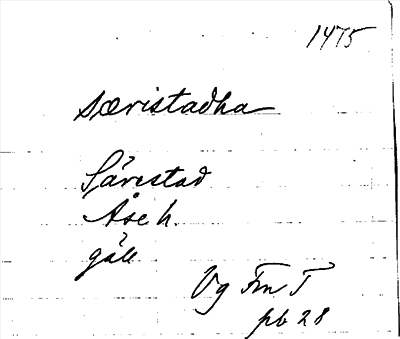 1475
særistadha
Särestad
Åse h.
gäll
Vg Fm T
pb 28